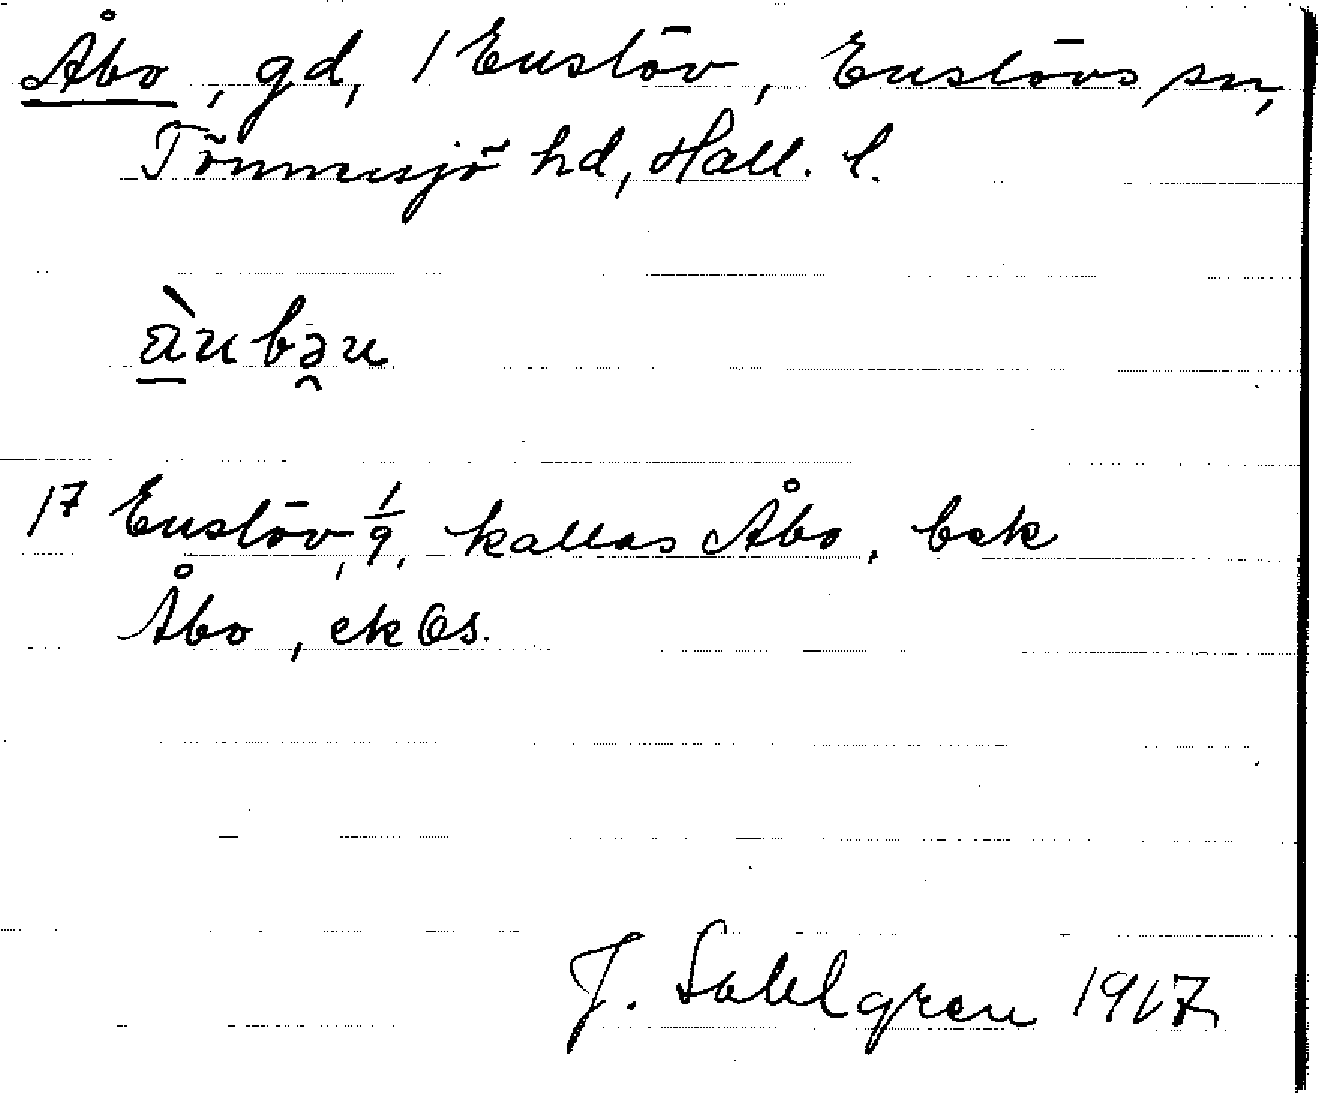 Åbo, gd, 1 Enslöv, Enslövs sn,
Tönnersjö hd, Hall. l.
àu bəu
1⁷ Enslöv, 1/9, kallas Åbo, bek
Åbo, ek Os.
J. Sahlgren 1917